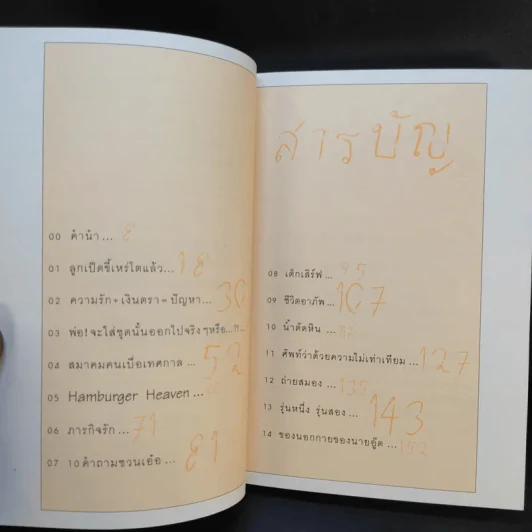 00 คำนำ... 8
01 ลูกเป็ดขี้เหร่โตแล้ว... 18
02 ความรัก+เงินตรา=ปัญหา... 30
03 พ่อ! จะใส่ชุดนั้นออกไปจริงๆหรือ...
04 สมาคมคนเบื่อเทศกาล ... 52
05 Hamburger Heaven ...
06 ภารกิจรัก ... 71
07 10 คำถามชวนเอ๋อ ... 81
สารบัญ
08 เด็กเสิร์ฟ ... 95
09 ชีวิตอาภัพ... 107
10 น้ำตัดหิน ...
11 ศัพท์ว่าด้วยความไม่เท่าเทียม... 127
12 ถ่ายสมอง ... 135
13 รุ่นหนึ่ง รุ่นสอง ... 143
14 ของนอกกายของนายอู๊ด ... 152